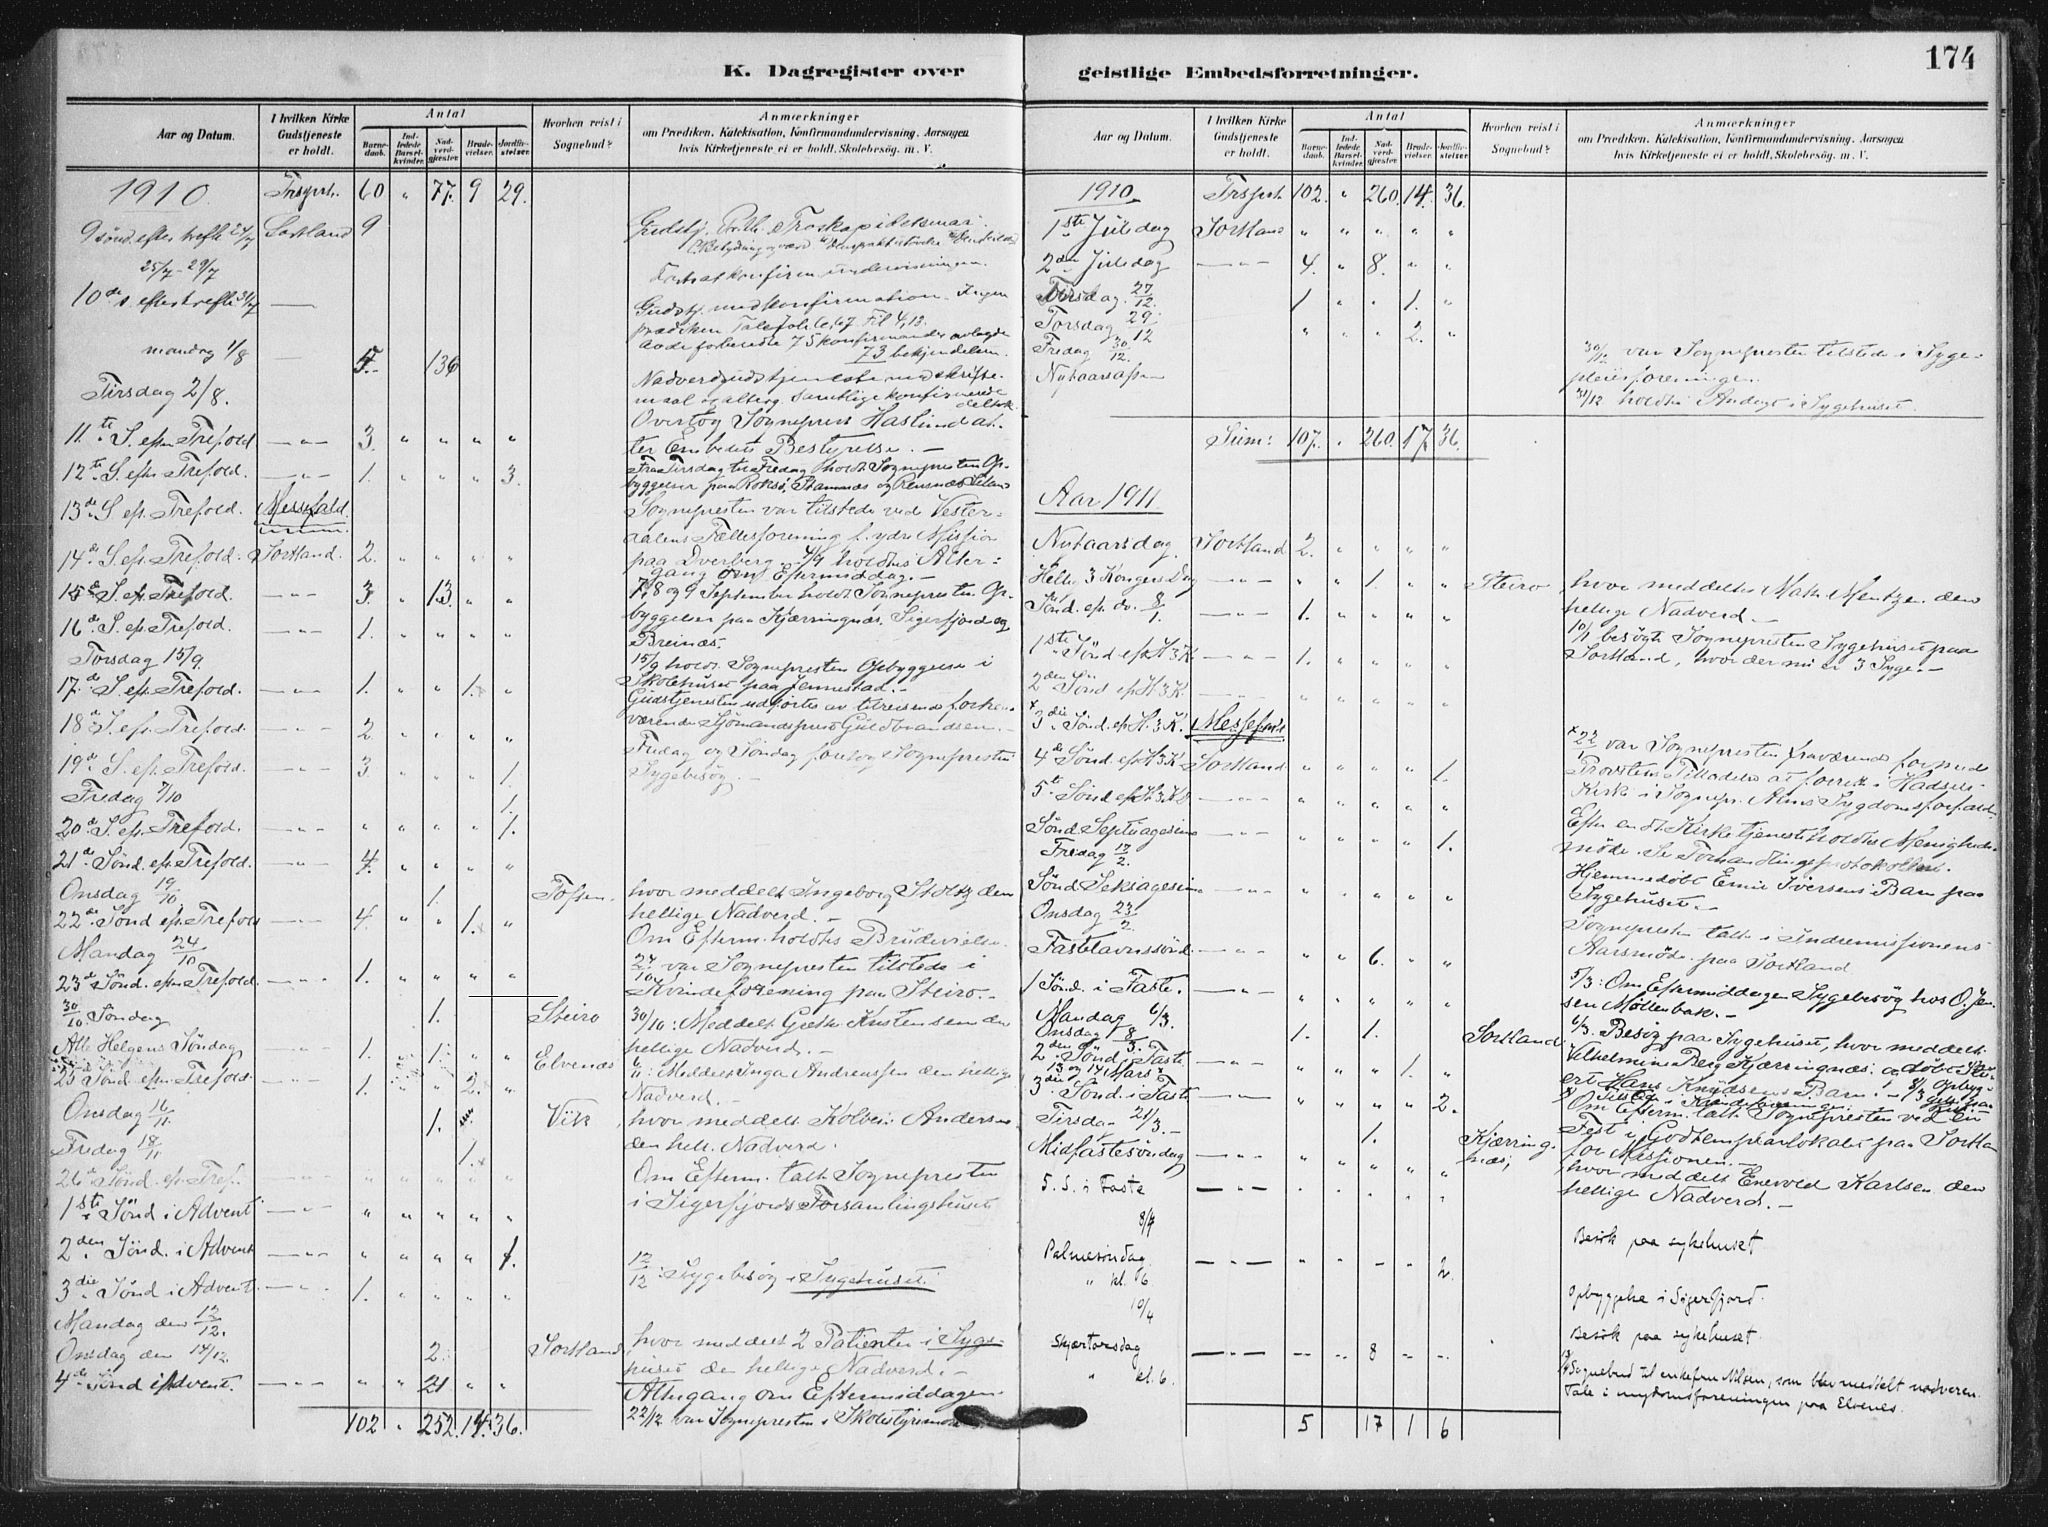 174
K. Dagregister over
geistlige Embedsforretninger.
Aar og Datum.
I hvilken Kirke Gudstjeneste er holdt.
Antal
Barnedaab.
Indledede Barselkvinder.
Nadverdgjester
Brudevielser.
Jordfæstelser.
Hvorhen reist i Sognebud?
Anmærkninger
om Prædiken, Katekisation, Konfirmandundervisning, Aarsagen
hvis Kirketjeneste ei er holdt, Skolebesøg. m. V.
1910 Trspt. 60 " 77. 9 29.
9 sønd. efter trefh. 24/7 Sortland 9
25/7 - 29/7 Fortsat konfirm. undervisningen.
10de s. efter trefh. 31/7 Gudstj. med konfirmation. Ingen
73 bekjendelsen.
mandag 1/8 5. 136 Nadverdgudstjeneste med skrifte-
maal og alterg. Samtlige konfirmerede deltok.
Tirsdag 2/8. Overtog Sogneprest Haslund at-
ter Embedets Bestyrelse. —
11te S. efter Trefold — " — 3. " " " "
12te S. efter Trefold. — " — 1. " " " 3. Fra Tirsdag til Fredag holdt Sognepresten Op-
byggelser paa Roksø, Stamnes og
13de S. ef. Trefold. Messefald. Sognepresten var tilstede ved Vester-
aalens Fællesforening f. ydre Mission
14de S. ef. Trefold. Sortland. 2. " " " " paa Dverberg. 4/9 holdtes Alter-
gang om Eftermiddag. —
15de S. ef. Trefold. — " — 3. " 13. " " 7, 8 og 9 September holdt Sognepresten Op-
byggelser paa Kjærringnæs, Sigerfjord og
Breinæs.
16de S. ef. Trefold. — " — 1. " " " "
Torsdag 15/9. 15/9 holdt Sognepresten Opbyggelse i
Skolehuset paa Jennestad. —
17de S. ef. Trefold. — " — 1. " " 1. " Gudstjenesten udførtes av tilreisende forhen-
værende Sjømandsprest Guldbrandsen. —
18de S. ef. Trefold. — " — 2 " " " "
19de S. ef. Trefold. — " — 3 " " " 1. Fredag og Søndag foretog Sognepresten
Sygebesøg. —
Fredag 7/10 1.
20de S. ef. Trefold. — " — " " " " 1.
21de Sønd. ef. Trefold. — " — 4. " " " "
Onsdag 19/10. 1. Tofsen. hvor meddelt Ingeborg Stoltz den
hellige Nadverd. —
22de Sønd ef. Trefold — " — 4. " " 1. " Om Efterm. holdtes Brudevielse.
Mandag 24/10 24/10 var Sognepresten tilstede i
Kvindeforening paa Steiro. —
23de Sønd. efter Trefold. — " — 1. " " " "
30/10. Søndag 1. Steiro 30/10: Meddelt Kristensen den
hellige Nadverd. —
Alle Helgens Søndag — " — 1. " 1. " " Elvenæs " : Meddelt Inga Andreassen den hellige
Nadverd. —
25 Sønd. efter Trefold. — " — 1. " " 2. "
Onsdag 16/11. 1. Vik hvor meddelt Anders
den hell. Nadverd.
Fredag 18/11 1.
26de Sønd. ef. Tref. — " — " " " " " Om Efterm. talte Sognepresten
i Sigerfjords Forsamlingshuset
1ste Sønd i Advent — " — " " " " "
2den Sønd. i Advent — " — " " " " 1. 12/12: Sygebesøg i Sygehuset.
3die Sønd i Advent. — " — 1. " " " "
Mandag den 12/12.
Onsdag den 14/12 2. Sortland, hvor meddelt 2 Patienter i Syge-
huset den hellige Nadverd. —
4de Sønd i Advent. — " — " " 21 " " Altergang om Eftermiddagen.
102 " 252. 14. 36. 22/12 var Sognepresten i Skolestyremøde
Aar og Datum.
I hvilken Kirke Gudstjeneste er holdt.
Antal
Barnedaab.
Indledede Barselkvinder.
Nadverdgjester
Brudevielser.
Jordfæstelser.
Hvorhen reist i Sognebud?
Anmærkninger
om Prædiken, Katekisation, Konfirmandundervisning, Aarsagen
hvis Kirketjeneste ei er holdt, Skolebesøg. m. V.
1910 Trspt. 102. " 260. 14. 36.
1ste Juledag Sortland " " " " "
2den Juledag — " — 4. " 8. " "
Tirsdag 27/12. 1. " " 1. "
Torsdag 29/12 " " " 2. "
Fredag 30/12. 30/12 var Sognepresten tilstede i Syge-
pleieforeningen.
Nytaarsaften 31/12 holdtes Andagt i Sygehuset.
Sum: 107. " 260. 17. 36.
Aar 1911.
Nytaarsdag Sortland 2. " " " "
Hellig 3 Kongers Dag — " — " " 1. " " Steiro, hvor meddeltes Mentzen den
hellige Nadverd. —
Sønd. ef. do. 8/1. — " — 1. " " " " 10/1 besøgte Sognepresten Sygehuset paa
Sortland, hvor der nu er 3 Syge. —
1ste Sønd ef H 3 K. — " — 1. " " " "
2den Sønd ef H. 3 K. — " — " " " " "
x 3die Sønd. ef H. 3 K. Messefald. x 22/1 var Sognepresten fraværende for med
Provstens Tilladelse at forrette i Hadsels
Kirke i Sognepr. Sygdomsforfald.
4de Sønd ef H 3 K Sortland " " " " 1.
5te Sønd ef H. 3. K. — " — " " " " " Efter endt Kirketjeneste holdtes Menigheds-
møde. Se Forhandlingsprotokollen.
Sønd. Septuagesima — " — " " " " 1.
Fredag 17/2. Hjemmedøbt Emil Iversens Barn paa
Sygehuset. —
Sønd Seksagesima " " " " "
Onsdag 23/2 Sognepresten talte i Indremissionens
Aarsmøde paa Sortland
Fastelavnssønd. — " — " " 6. " "
1 Sønd. i Faste. — " — " " " " " 5/3: Om Eftermiddagen Sygebesøg hos O. Jen-
sen Møllenbak. —
Mandag 6/3. 1. 1. Sortland 6/3. Besøg paa Sygehuset, hvor meddelt
Vilhelmine Berg Kjærringnæs. og døbt
Hans Knudsens Barn. —
Onsdag 8/3. 8/3 Opbyg-
2den Sønd i Faste — " — " " " 1. "
13 og 14 Mars x x Tilsted i Kvindeforeninger.
3die Sønd. i Faste — " — " " " " 2. Om Efterm. talte Sognepresten ved en
Fest i Godtemplarlokalet paa Sortland
for Missionen. —
Tirsdag 21/3. 1. Kjærringnæs, hvor meddelt Enevold Karlsen den
hellige Nadverd. —
Midfastesøndag — " — " " " " "
5. S. i Faste — " — " " " " "
8/4 Besøk paa sykehuset
Palmesøndag — " — " " - " 2
" kl. 6 Opbyggelse i Sigerfjord.
10/4 Besøk paa sykehuset.
Skjærtorsdag — " — " " 8 " "
" kl. 6. Sognebud til enkefru Nilsen, som blev meddelt nadveren.
Tale i ungdomsforeningen paa Elvenes.
5 17 1 6